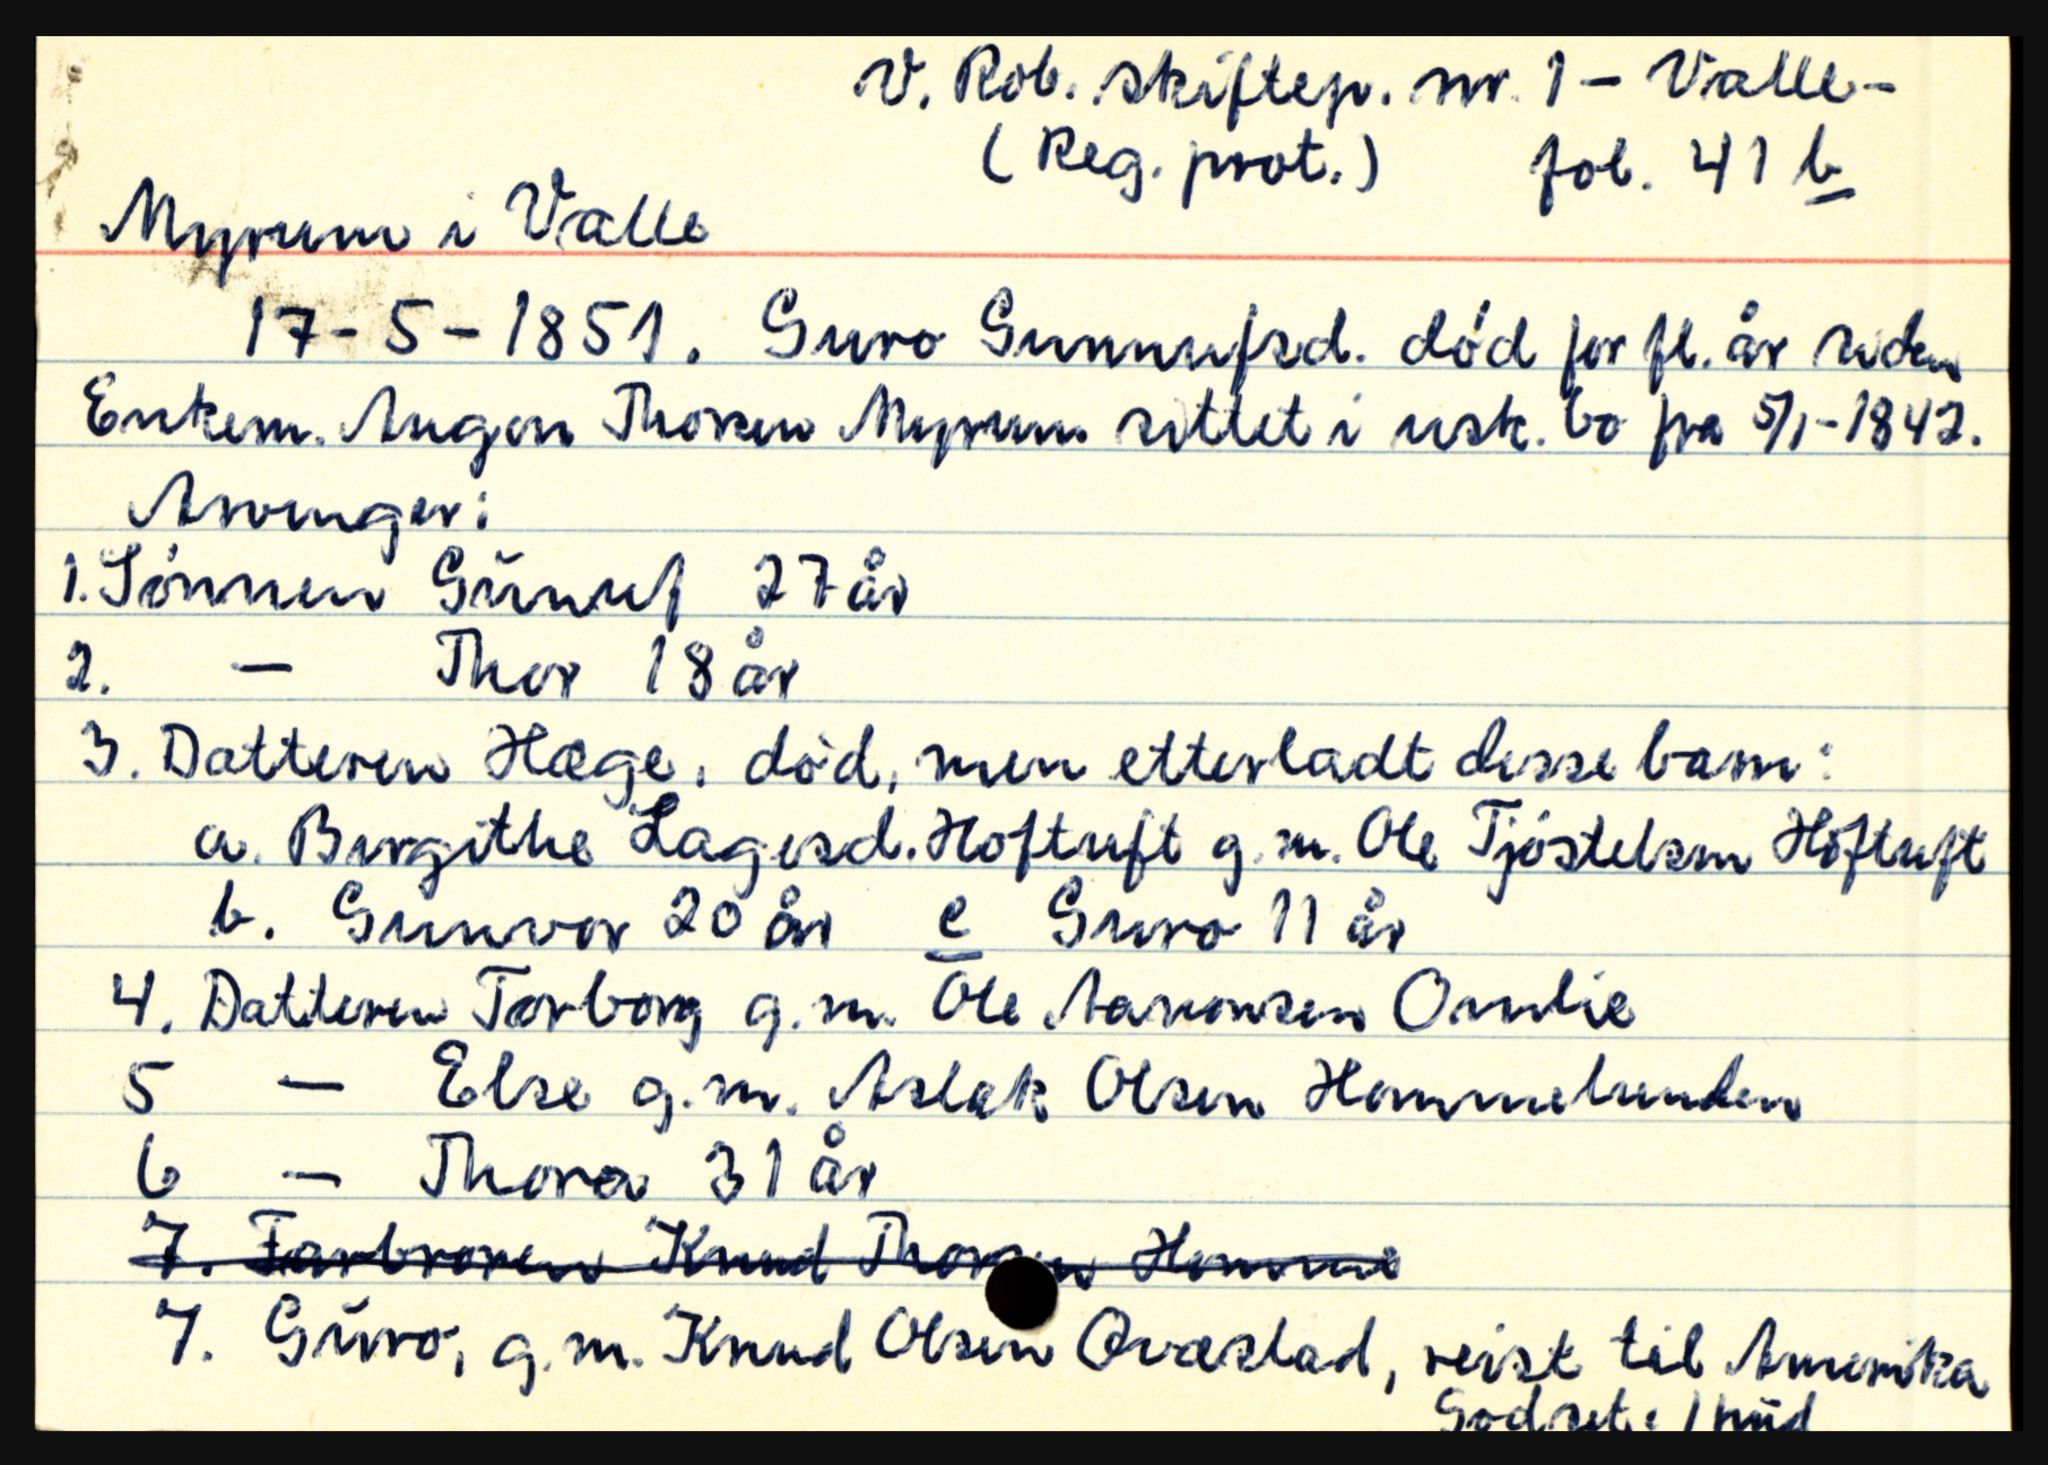 V. Rob. skiftep. nr. 1 - Valle -
(Reg. prot.) fol. 41 b
Myrum i Valle
17-5-1851. Guro Gunnufsd. død for fl. år siden
Enkem. Augon Thorsen Myrum sittet i usk. bo fra 5/1-1842.
Arvinger:
1. Sønnen Gŭnuf 27 år
2. — Thor 18 år
3. Datteren Hæge, død, men etterladt disse barn:
a. Birgithe Lagesd. Hoftuft g. m. Ole Tjøstelsen Hoftuft
b. Gunvor 20 år c Guro 11 år
4. Datteren Torborg g. m. Ole Aanonsen Omlie
5 — Else g. m. Aslak Olsen Hommelunden
6 — Thora 31 år
7. Farbroren Knud Thorsen Homme
7. Gŭro, g. m. Knud Olsen Qvæstad, reist til Amerika